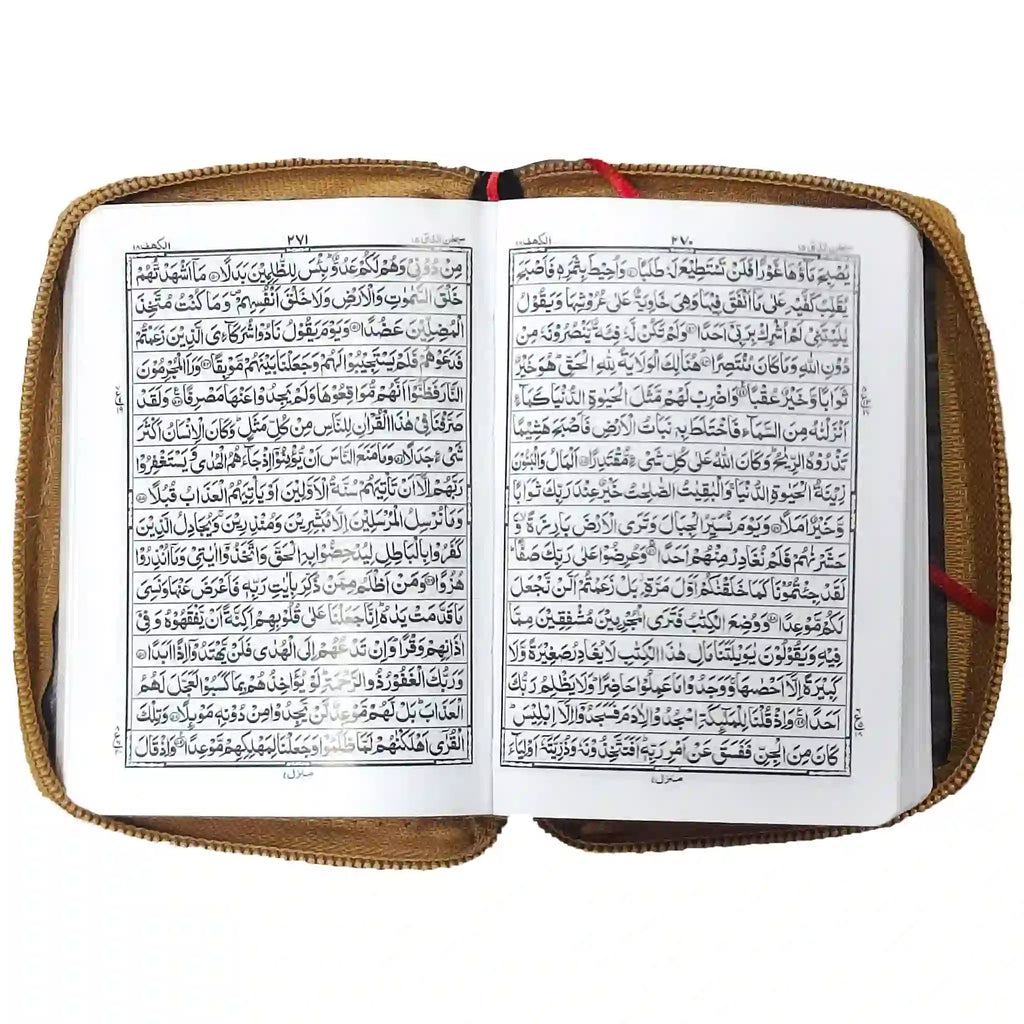 سبحن الذی ١٥ ٢٧٠ الکهف ١٨
یُصْبِحَ مَآؤُهَا غَوْرًا فَلَنْ تَسْتَطِیْعَ لَهٗ طَلَبًا وَاُحِیْطَ بِثَمَرِهٖ فَاَصْبَحَ
یُقَلِّبُ کَفَّیْهِ عَلٰی مَاۤ اَنْفَقَ فِیْهَا وَهِیَ خَاوِیَةٌ عَلٰی عُرُوْشِهَا وَیَقُوْلُ
یٰلَیْتَنِیْ لَمْ اُشْرِكْ بِرَبِّیْۤ اَحَدًا وَلَمْ تَكُنْ لَّهٗ فِئَةٌ یَّنْصُرُوْنَهٗ مِنْ
دُوْنِ اللّٰهِ وَمَا کَانَ مُنْتَصِرًا هُنَالِكَ الْوَلَایَةُ لِلّٰهِ الْحَقِّ هُوَ خَیْرٌ
ثَوَابًا وَّخَیْرٌ عُقْبًا وَاضْرِبْ لَهُمْ مَّثَلَ الْحَیٰوةِ الدُّنْیَا کَمَآءٍ
اَنْزَلْنٰهُ مِنَ السَّمَآءِ فَاخْتَلَطَ بِهٖ نَبَاتُ الْاَرْضِ فَاَصْبَحَ هَشِیْمًا
تَذْرُوْهُ الرِّیٰحُ وَکَانَ اللّٰهُ عَلٰی کُلِّ شَیْءٍ مُّقْتَدِرًا اَلْمَالُ وَالْبَنُوْنَ
زِیْنَةُ الْحَیٰوةِ الدُّنْیَا وَالْبٰقِیٰتُ الصّٰلِحٰتُ خَیْرٌ عِنْدَ رَبِّكَ ثَوَابًا
وَّخَیْرٌ اَمَلًا وَیَوْمَ نُسَیِّرُ الْجِبَالَ وَتَرَی الْاَرْضَ بَارِزَةً وَّ
حَشَرْنٰهُمْ فَلَمْ نُغَادِرْ مِنْهُمْ اَحَدًا وَعُرِضُوْا عَلٰی رَبِّكَ صَفًّا
لَقَدْ جِئْتُمُوْنَا کَمَا خَلَقْنٰکُمْ اَوَّلَ مَرَّةٍ بَلْ زَعَمْتُمْ اَلَّنْ نَّجْعَلَ
لَکُمْ مَّوْعِدًا وَوُضِعَ الْکِتٰبُ فَتَرَی الْمُجْرِمِیْنَ مُشْفِقِیْنَ مِمَّا
فِیْهِ وَیَقُوْلُوْنَ یٰوَیْلَتَنَا مَالِ هٰذَا الْکِتٰبِ لَا یُغَادِرُ صَغِیْرَةً وَّلَا
کَبِیْرَةً اِلَّاۤ اَحْصٰهَا وَوَجَدُوْا مَا عَمِلُوْا حَاضِرًا وَلَا یَظْلِمُ رَبُّكَ
اَحَدًا وَاِذْ قُلْنَا لِلْمَلٰٓئِکَةِ اسْجُدُوْا لِاٰدَمَ فَسَجَدُوْۤا اِلَّاۤ اِبْلِیْسَ
کَانَ مِنَ الْجِنِّ فَفَسَقَ عَنْ اَمْرِ رَبِّهٖ اَفَتَتَّخِذُوْنَهٗ وَذُرِّیَّتَهٗۤ اَوْلِیَآءَ
منزل٤
سبحن الذی ١٥ ٢٧١ الکهف ١٨
مِنْ دُوْنِیْ وَهُمْ لَکُمْ عَدُوٌّ بِئْسَ لِلظّٰلِمِیْنَ بَدَلًا مَاۤ اَشْهَدْتُّهُمْ
خَلْقَ السَّمٰوٰتِ وَالْاَرْضِ وَلَا خَلْقَ اَنْفُسِهِمْ وَمَا کُنْتُ مُتَّخِذَ
الْمُضِلِّیْنَ عَضُدًا وَیَوْمَ یَقُوْلُ نَادُوْا شُرَکَآءِیَ الَّذِیْنَ زَعَمْتُمْ
فَدَعَوْهُمْ فَلَمْ یَسْتَجِیْبُوْا لَهُمْ وَجَعَلْنَا بَیْنَهُمْ مَّوْبِقًا وَرَاَ الْمُجْرِمُوْنَ
النَّارَ فَظَنُّوْۤا اَنَّهُمْ مُّوَاقِعُوْهَا وَلَمْ یَجِدُوْا عَنْهَا مَصْرِفًا وَلَقَدْ
صَرَّفْنَا فِیْ هٰذَا الْقُرْاٰنِ لِلنَّاسِ مِنْ کُلِّ مَثَلٍ وَکَانَ الْاِنْسَانُ اَکْثَرَ
شَیْءٍ جَدَلًا وَمَا مَنَعَ النَّاسَ اَنْ یُّؤْمِنُوْۤا اِذْ جَآءَهُمُ الْهُدٰی وَیَسْتَغْفِرُوْا
رَبَّهُمْ اِلَّاۤ اَنْ تَاْتِیَهُمْ سُنَّةُ الْاَوَّلِیْنَ اَوْ یَاْتِیَهُمُ الْعَذَابُ قُبُلًا
وَمَا نُرْسِلُ الْمُرْسَلِیْنَ اِلَّا مُبَشِّرِیْنَ وَمُنْذِرِیْنَ وَیُجَادِلُ الَّذِیْنَ
کَفَرُوْا بِالْبَاطِلِ لِیُدْحِضُوْا بِهِ الْحَقَّ وَاتَّخَذُوْۤا اٰیٰتِیْ وَمَاۤ اُنْذِرُوْا
هُزُوًا وَمَنْ اَظْلَمُ مِمَّنْ ذُکِّرَ بِاٰیٰتِ رَبِّهٖ فَاَعْرَضَ عَنْهَا وَنَسِیَ
مَا قَدَّمَتْ یَدٰهُ اِنَّا جَعَلْنَا عَلٰی قُلُوْبِهِمْ اَکِنَّةً اَنْ یَّفْقَهُوْهُ وَفِیْۤ
اٰذَانِهِمْ وَقْرًا وَاِنْ تَدْعُهُمْ اِلَی الْهُدٰی فَلَنْ یَّهْتَدُوْۤا اِذًا اَبَدًا
وَرَبُّكَ الْغَفُوْرُ ذُو الرَّحْمَةِ لَوْ یُؤَاخِذُهُمْ بِمَا کَسَبُوْا لَعَجَّلَ لَهُمُ
الْعَذَابَ بَلْ لَّهُمْ مَّوْعِدٌ لَّنْ یَّجِدُوْا مِنْ دُوْنِهٖ مَوْئِلًا وَتِلْكَ
الْقُرٰۤی اَهْلَکْنٰهُمْ لَمَّا ظَلَمُوْا وَجَعَلْنَا لِمَهْلِکِهِمْ مَّوْعِدًا وَاِذْ قَالَ
منزل٤